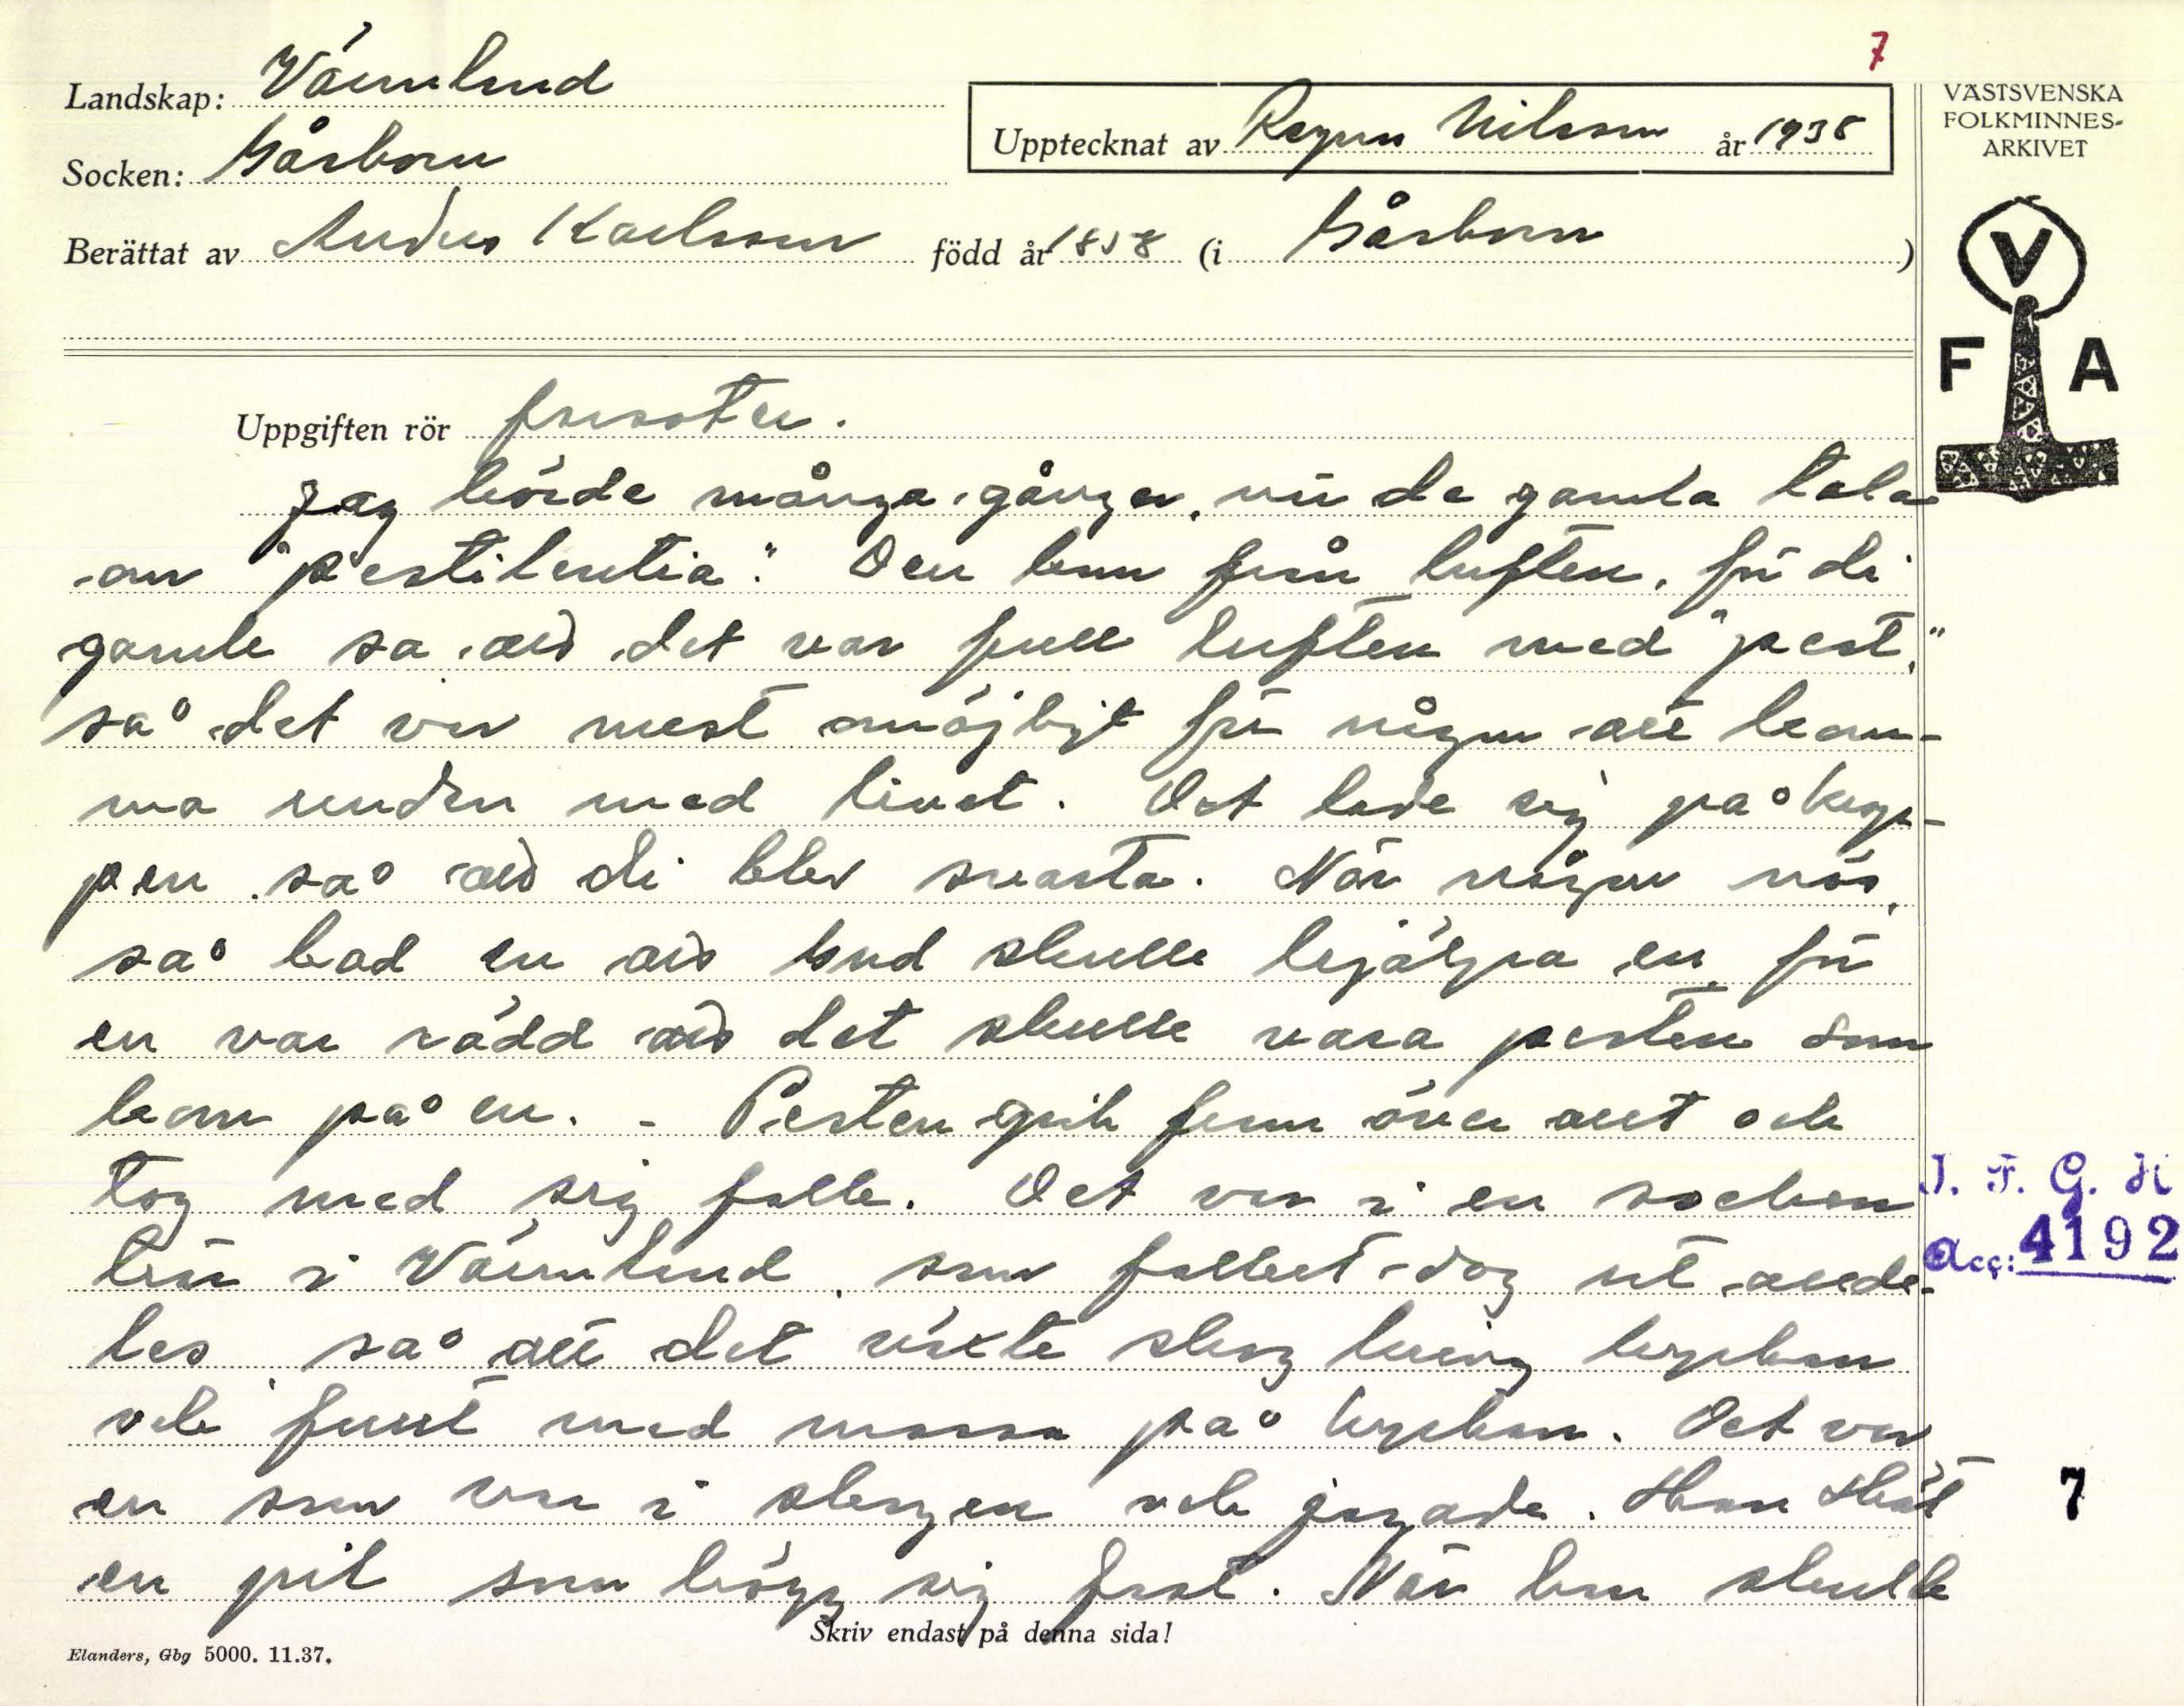 7
Landskap: Värmland
Socken: Gåsborn
Upptecknat av Ragnar Nilsson år 1938
Berättat av Anders Karlsson född år 1858 (i Gåsborn)
VÄSTSVENSKA
FOLKMINNES-
ARKIVET
V
F A
Uppgiften rör farsoter.
Jag hörde många gånger, när de gamla tala
om "pestilentia". Den kom från luften, för di
gamle sa att det var full luften med "pest,"
så det var mest omöjligt för någon att kom-
ma undan med livet. Det lade sig på krop-
pen så att di blev svarta. När någon nös,
så bad en att Gud skulle hjälpa en för
en var rädd att det skulle vara pesten som
kom på en. - Pesten gick fram över allt och
tog med sig folk. Det var i en socken
här i Värmland, som folket dog ut allde-
les, så att det växte skog kring kyrkan
och fullt med mossa på kyrkan. Det var
en som var i skogen och jagade. Han sköt
en pil som högg sig fast. När han skulle
Skriv endast på denna sida!
Elanders, Gbg 5000. 11.37.
I. F. G. H
Acc: 4192
7